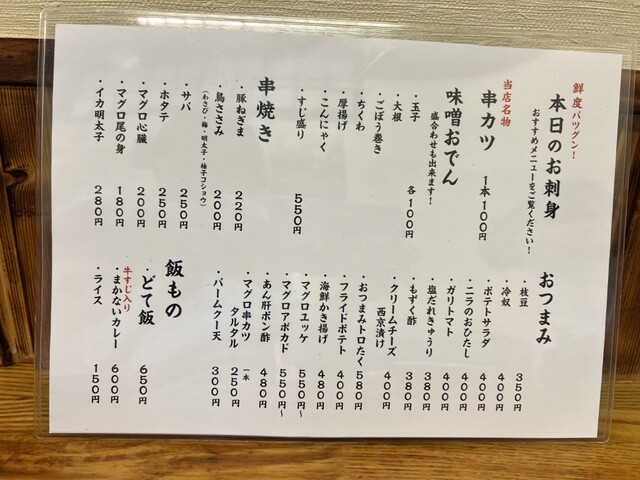 鮮度バツグン！
本日のお刺身
おすすめメニューをご覧ください！
当店名物
串カツ 1本100円
味噌おでん
盛合わせも出来ます！
・玉子
・大根 各100円
・ごぼう巻き
・ちくわ
・厚揚げ
・こんにゃく
・すじ盛り 550円
串焼き
・豚ねぎま 220円
・鳥ささみ 200円
（わさび・梅・明太子・柚子コショウ）
・サバ 250円
・ホタテ 250円
・マグロ心臓 200円
・マグロ尾の身 180円
・イカ明太子 280円
おつまみ
・枝豆 350円
・冷奴 400円
・ポテトサラダ 400円
・ニラのおひたし 400円
・ガリトマト 400円
・塩だれきゅうり 380円
・もずく酢 380円
・クリームチーズ
西京漬け 400円
・おつまみトロたく 580円
・フライドポテト 400円
・海鮮かき揚げ 480円
・マグロユッケ 550円〜
・マグロアボカド 550円〜
・あん肝ポン酢 480円
・マグロ串カツ
タルタル 一本 250円
・バームクー天 300円
飯もの
・どて飯 650円
牛すじ入り
・まかないカレー 600円
・ライス 150円